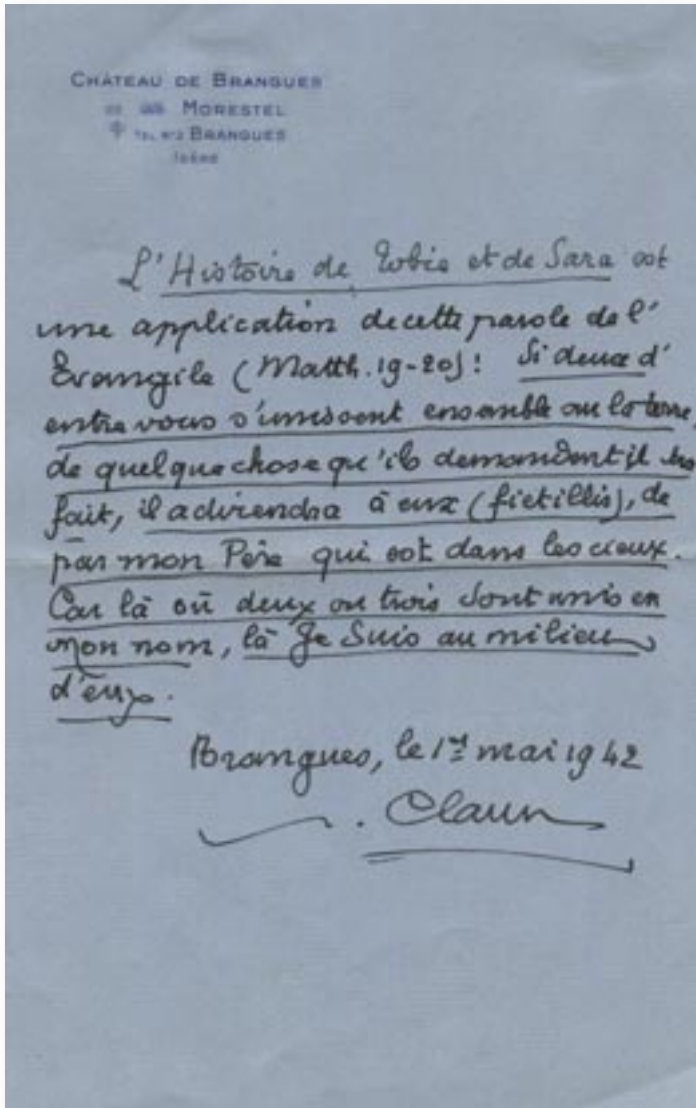 CHÂTEAU DE BRANGUES
MORESTEL
BRANGUES
ISÈRE
L'Histoire de Tobie et de Sara est
une application de cette parole de l'
Evangile (Matth. 19-20): Si deux d'
entre vous s'unissent ensemble sur la terre,
de quelque chose qu'ils demandent il
fait, il adviendra à eux (fiet illis), de
par mon Père qui est dans les cieux.
Car là où deux ou trois sont unis en
mon nom, là Je Suis au milieu
d'eux.
Brangues, le 1er mai 1942